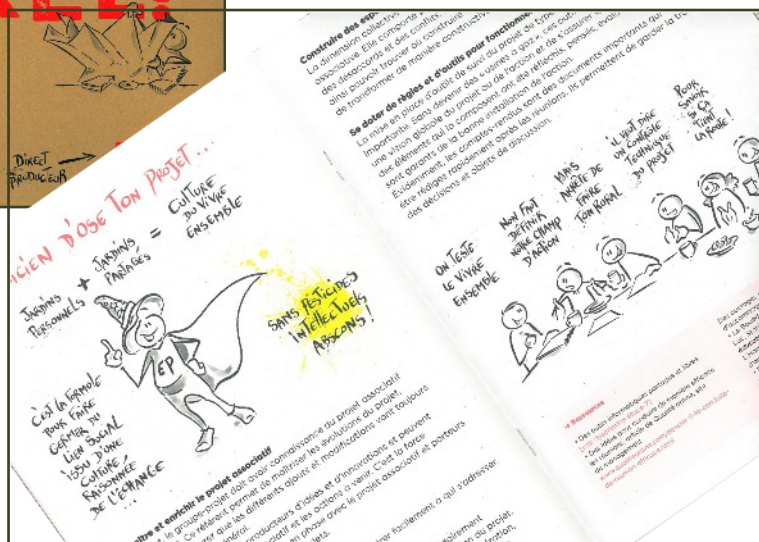 DIRECT
PRODUCTEUR
ICIEN D'OSE TON PROJET...
JARDINS
PERSONNELS
+
JARDINS
PARTAGÉS
=
CULTURE
DU VIVRE
ENSEMBLE
C'EST LA FORMULE
POUR FAIRE
GERMER DU
LIEN SOCIAL
ISSU D'UNE
CULTURE
RAISONNÉE
DE L'ÉCHANGE
...
EP
SANS PESTICIDES
INTELLECTUELS
ABSCONS !
aître et enrichir le projet associatif
, le groupe-projet doit avoir connaissance du projet associatif
Ce référent permet de maîtriser les évolutions du projet,
que les différents ajouts et modifications vont toujours
producteurs d'idées et d'innovations et peuvent
ociatif et les actions à venir. C'est la force
en phase avec le projet associatif et porteurs
jets.
rer facilement à qui s'adresser
Construire des esp
La dimension collective
associative. Elle comporte
des désaccords et des conflits.
ainsi pouvoir trouver où construire
de transformer de manière constructiv
Se doter de règles et d'outils pour fonctionne
La mise en place d'outils de suivi du projet de type
importante. Sans devenir des « usines à gaz », ces out
une vision globale du projet ou de l'action et de s'assurer
des éléments qui la composent ont été réfléchis, pensés, évalu
sont garants de la bonne installation de l'action.
Evidemment, les comptes-rendus sont des documents importants qui
être rédigés rapidement après les réunions. Ils permettent de garder la tr
des décisions et objets de discussion.
ON TESTE
LE VIVRE
ENSEMBLE
NON FAUT
DÉFINIR
NOTRE CHAMP
D'ACTION
MAIS
ARRÊTE DE
FAIRE
TON RURAL
IL VEUT DIRE
UN CONTRÔLE
TECHNIQUE
DU PROJET
POUR
SAVOIR
SI ÇA
TIENT
LA ROUTE !
Ressources
Des outils informatiques partagés et libres
Des idées pour conduire de manière efficace
les réunions, extrait de Qualité online, site
de management
Des ouvrages